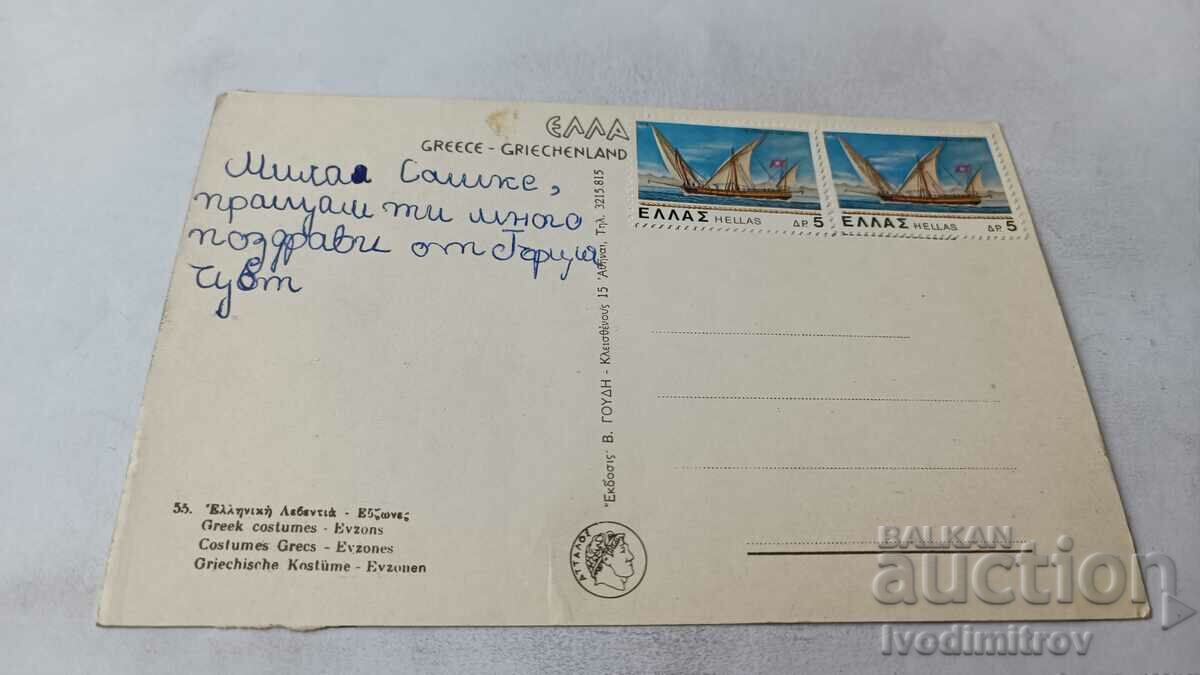 ΕΛΛΑ
GREECE - GRIECHENLAND
Мила Сашке,
пращам ти много
поздрави от Гърция
55. Ἑλληνικὴ Λεβεντιὰ - Εὔζωνες
Greek costumes - Evzons
Costumes Grecs - Evzones
Griechische Kostüme - Evzonen
Ἔκδοσις Β. ΓΟΥΔΗ - Κλεισθένους 15 Ἀθῆναι, Τηλ. 3215.815
ΑΤΤΑΛΟΣ
ΕΛΛΑΣ HELLAS ΔΡ. 5
ΕΛΛΑΣ HELLAS ΔΡ. 5
BALKAN
auction
Ivodimitrov